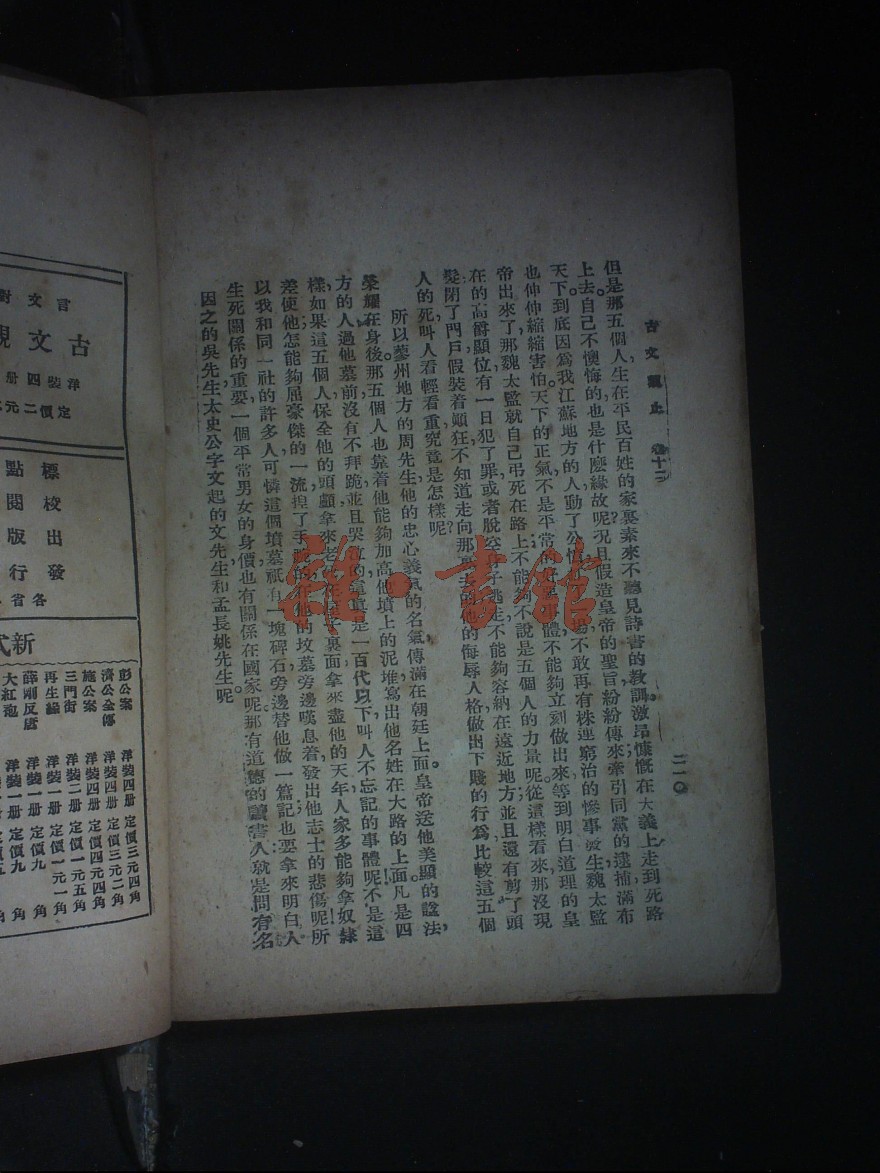 古文觀止 卷十二
二一〇
但是那五個人生在平民百姓的家裏素來不聽見詩書的教訓激昂慷慨在大義上走到死路
上去自己不懊悔的也是什麽緣故呢況且假造皇帝的聖旨紛紛傳來牽引同黨的逮捕滿布
天下到底因爲我江蘇地方的人動了公憤 不敢再有株連窮治的慘事發生魏太監
也伸伸縮縮害怕天下的正氣不是平常的 事體不能夠立刻做出來等到明白道理的皇
帝出來了那魏太監就自己弔死在路上不能夠不說是五個人的力量呢從這樣看來那沒現
在的高爵顯位有一日犯了罪或者脫 子逃走不能夠容納在遠近地方並且還有剪了頭
髮閉了門戶假裝着顛狂不知道走向那 他的侮辱人格做出下賤的行爲比較這五個
人的死叫人看輕看重究竟是怎樣呢?
所以蓼州地方的周先生他的忠心義氣的名氣傳滿在朝廷上面。皇帝送他美顯的諡法,
榮耀在身後那五個人也靠着他能夠加高他墳上的泥堆寫出他名姓在大路的上面凡是四
方的人過他墓前沒有不拜跪並且哭泣的這眞是一百代以下叫人不忘記的事體呢不是這
樣如果這五個人保全他的頭顱拿來老 子裏面拿來盡他的天年人家多能夠拿奴隸
差使他怎能夠屈豪傑的一流 了手 在他的坟墓旁邊嘆息着發出他志士的悲傷呢所
以我和同一社的許多人可憐這個墳墓祇有一塊碑石旁邊替他做一篇記也要拿來明白人
生死關係的重要一個平常男女的身價也有關係在國家呢那有道德的讀書人就是問有名
因之的吳先生太史公字文起的文先生和孟長姚先生呢。
雜·書館
言文對
古文觀
洋裝四册
定價二元
標點
校閱
出版
發行
各省
新式
彭公案 洋裝四册 定價三元四角
濟公全傳 洋裝四册 定價三元二角
施公案 洋裝四册 定價四元四角
三門街 洋裝二册 定價一元五角
再生緣 洋裝一册 定價一元一角
薛剛反唐 洋裝一册 定價九角
大紅袍 洋裝一册 定價五角